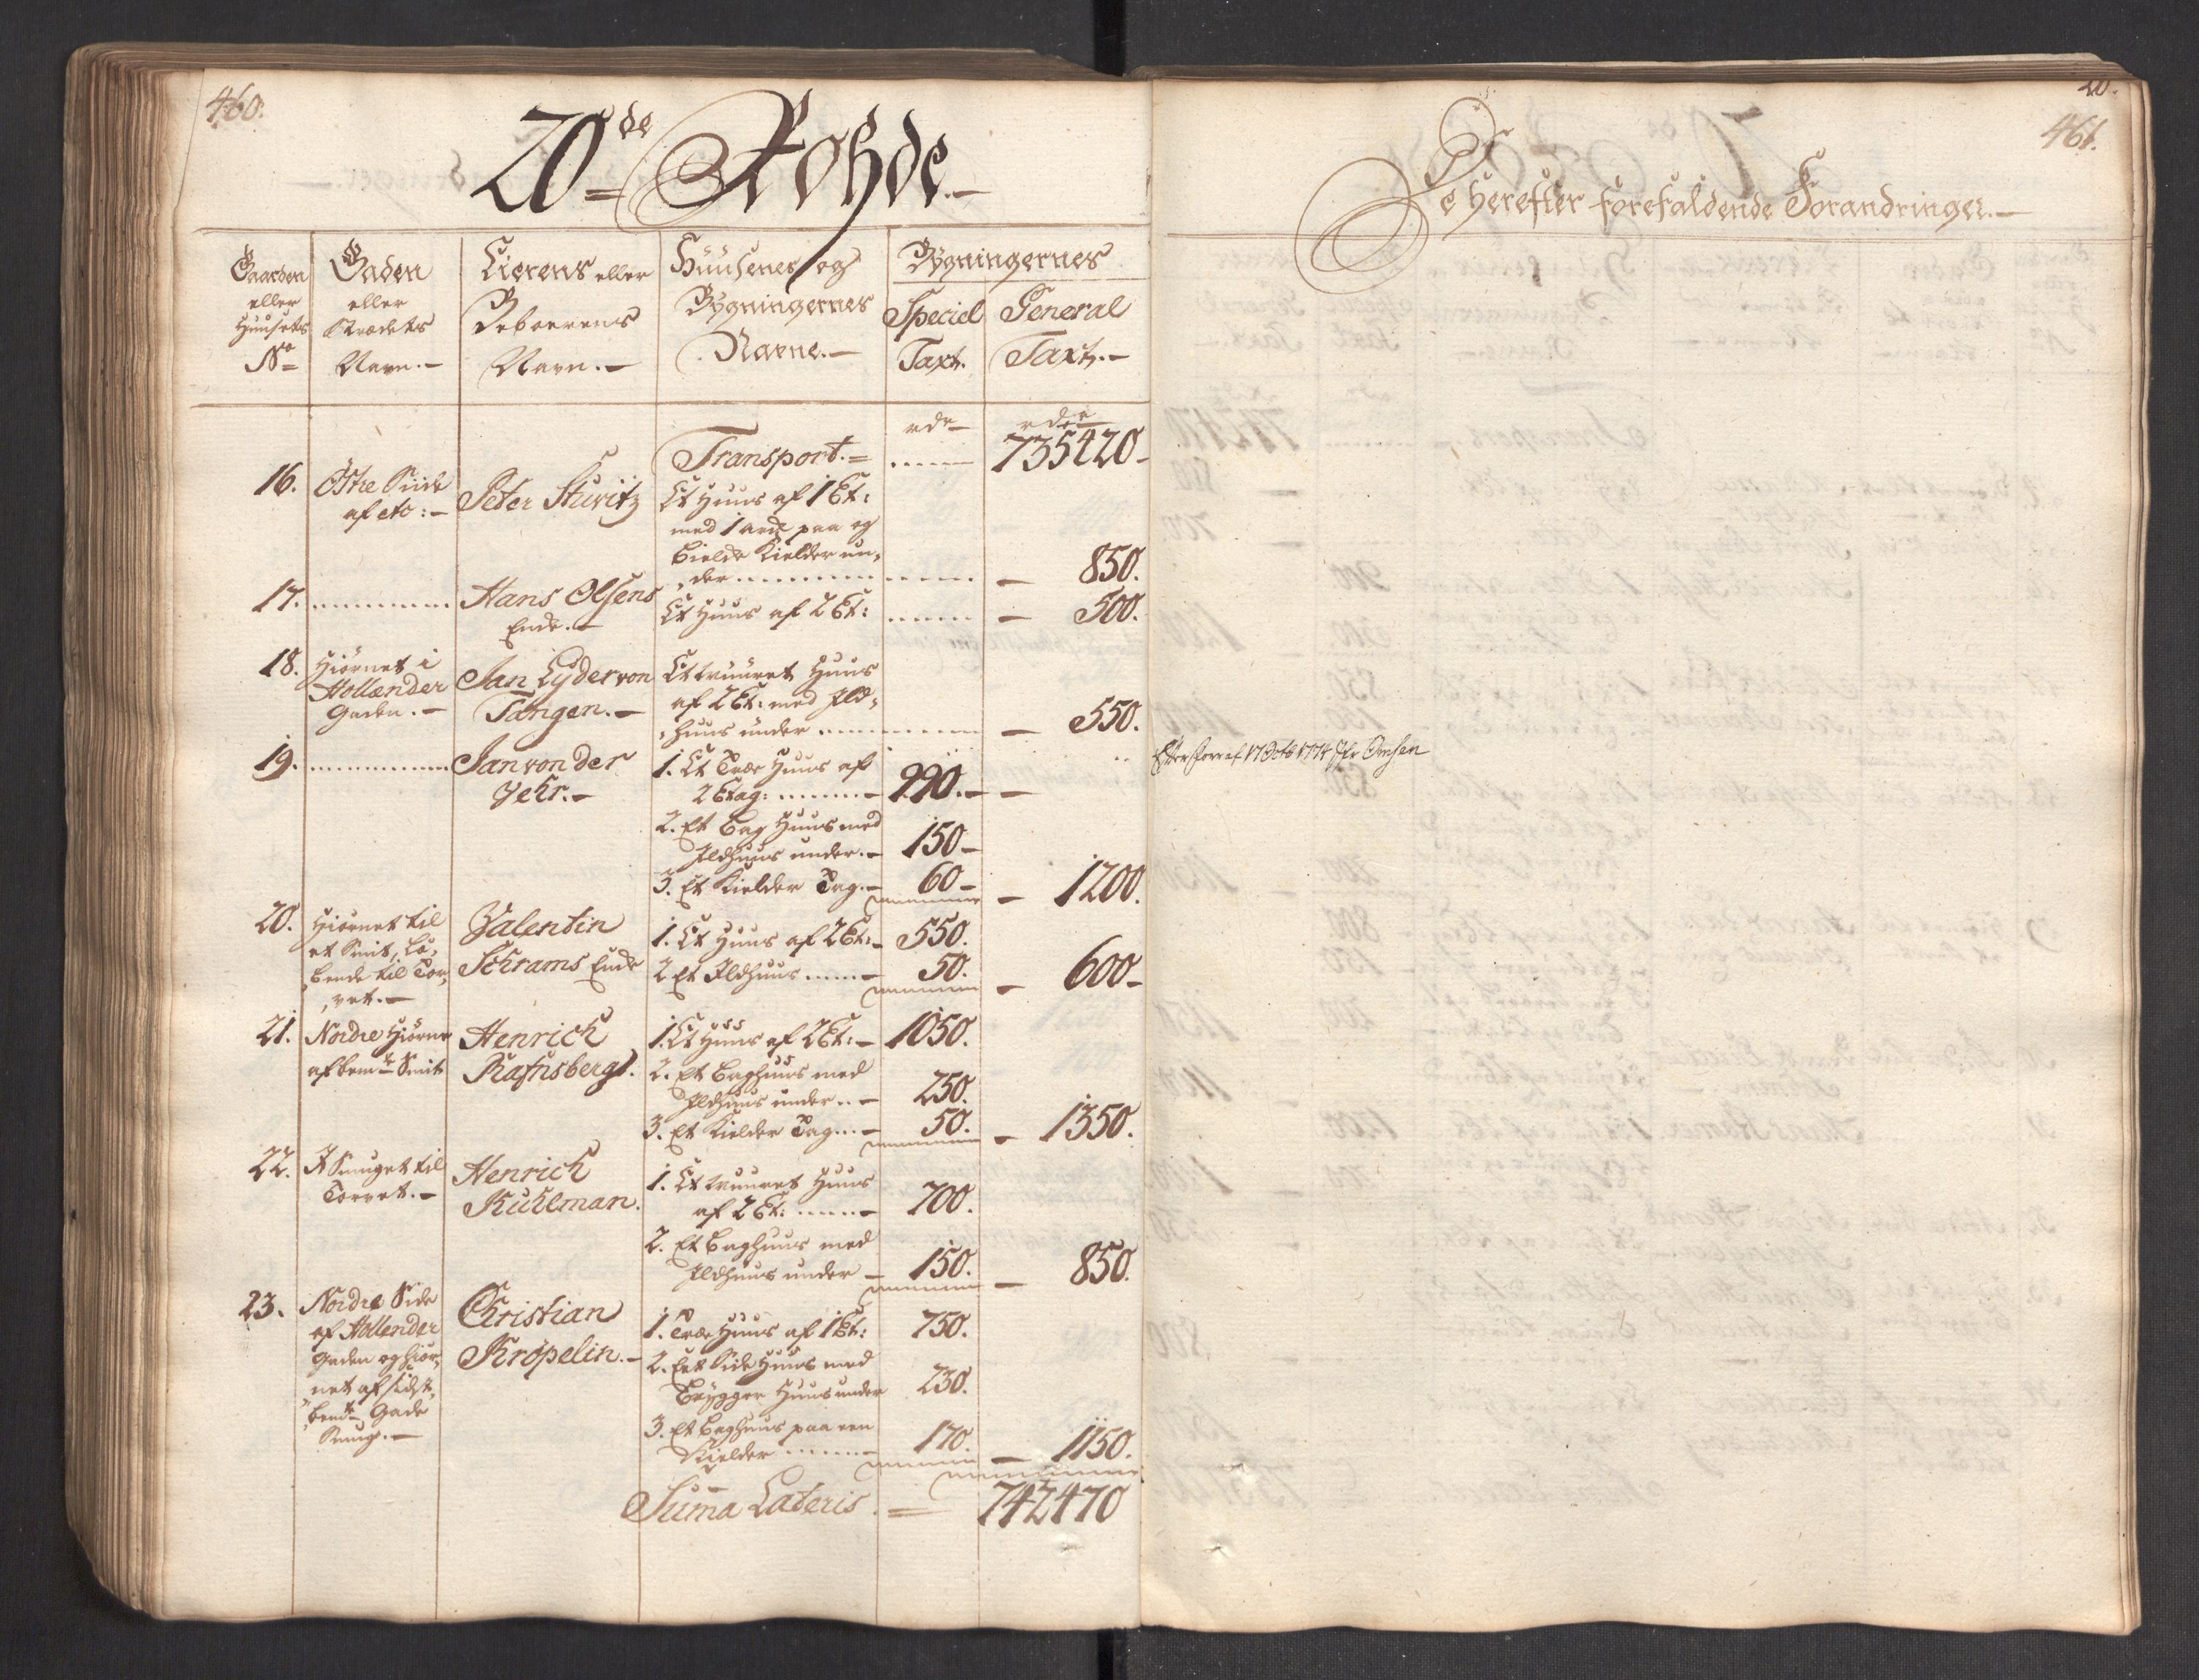 460.
20de Rohde.
Gaarden eller Huusets No
Gaden eller Strædets Navn.
Eierens eller Beboerens Navn.
Huusenes og Bygningernes Navne.
Bygningernes
Speciel Taxt.
General Taxt.
rdr
rdr
Transport.
735420
16. Østre Siide af dto: Peter Sturitz
Et Huus af 1 Et:
med 1 ark paa og
Bielde Kielder un-
der
850.
17. Hans Olsens Enke. Et Huus af 2 Et: 500.
18. Hiörnet i Hollænder Gaden.
Jan Lyder von Tangen.
Et muuret Huus
af 2 Et: med Ild-
huus under
550.
19. Jan von der Vehr.
1. Et Træe Huus af
2 Etag: 990.
2. Et Bag Huus med
Ildhuus under. 150
3. Et Kielder Tag. 60 1200.
20. Hiörnet til
et Smit, Lø-
bende til Tor-
vet.
Valentin
Schrams Enke
1. Et Huus af 2 Et: 550.
2 Et Ildhuus 50. 600
21. Nordre Hiörne
af bemte Smit
Henrich
Rafnsberg.
1. Et Huus af 2 Et: 1050.
2. Et Baghuus med
Ildhuus under 250.
3. Et Kielder Tag 50. 1350.
22. I Smuget til
Torvet.
Henrich
Kuhlman.
1. Et muuret Huus
af 2 Et: 700.
2. Et Baghuus med
Ildhuus under 150. 850.
23. Nordre Side
af Hollender
Gaden og Hiör-
net af sidst-
bemte Gade
Smug.
Christian
Kröpelin.
1. Træe Huus af 1 Et: 750.
2. Et Side Huus med
Brygger Huus under 230.
3. Et Baghuus paa een
Kielder 170. 1150.
Suma Lateris. 742470
20.
461.
De herefter forefaldende Forandringer.
Efter Forr af 17 Octb 1774